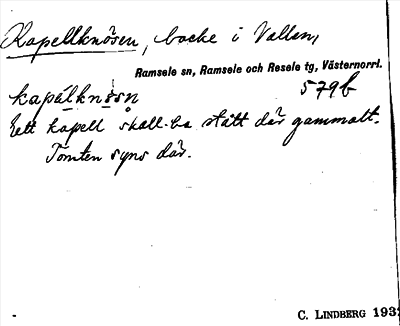 Kapellknösen, backe i Vallen,
Ramsele sn, Ramsele och Resele tg, Västernorrl.
579b
kapälknösn
Ett kapell skall ha stått där gammalt.
Tomten syns där.
C. LINDBERG 193